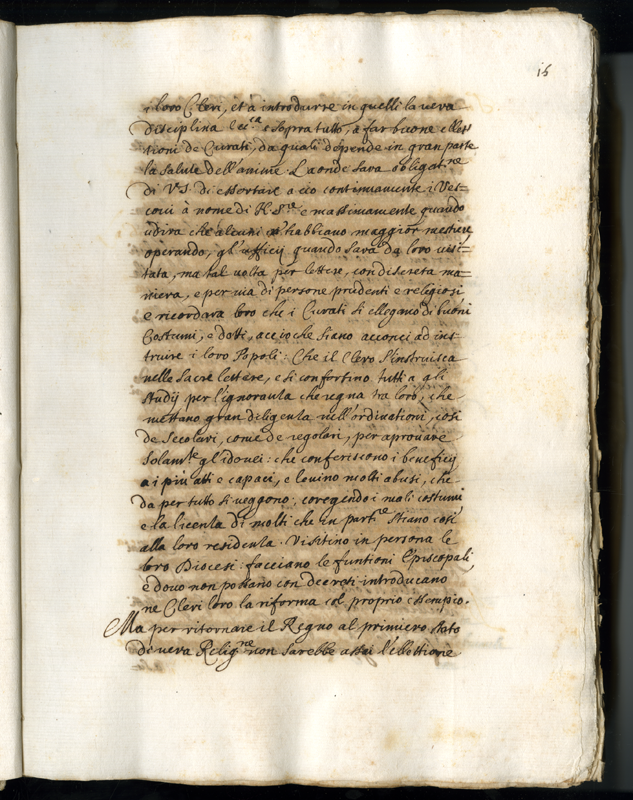 16
i loro Cleri, et à introdurre in quelli la vera
disciplina Ecc.ca e sopra tutto, a far buone elles=
tioni de Curati, da quali depende in gran parte
la salute dell'anime. Laonde sara obligat.ne
di V.S. di essortare a ciò continuamente i Ves=
covi à nome di N. S.re e massimamente quando
udira che alcuni n'habbiano maggior mestiere
operando, gl'ufficij quando sarà da loro visi=
tata, ma tal volta per lettere, con discreta ma=
niera, e per via di persone prudenti e religiosi
e ricordara loro che i Curati si ellegano di buoni
Costumi, e dotti, acciò che siano acconci ad ins=
truire i loro Popoli: Che il Clero s'instruisca
nelle Sacre lettere, e si confortino tutti a gli
studij per l'ignoranza che regna tra loro, che
mettano gran diligenza nell'ordinationi, così
de Secolari, come de regolari, per aprovare
solam.te gl'idonei: che conferiscono i beneficij
a i più atti e capaci, e levino molti abusi, che
da per tutto si veggono; coregendo i mali costumi
e la licenza di molti che in part.re stiano così
alla loro residenza. Visitino in persona le
loro Diocesi: facciano le funtioni Episcopali,
e dovo non possano con decreti introducano
ne Cleri loro la riforma col proprio essempio.
Ma per ritornare il Regno al primiero stato
di vera Relig.ne non sarebbe assai l'ellettione